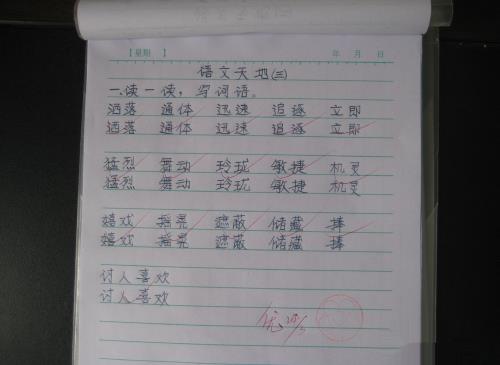 【星期 】 年 月 日
语文天地(三)
一、读一读，写词语。
洒落 通体 迅速 追逐 立即
洒落 通体 迅速 追逐 立即
猛烈 舞动 玲珑 敏捷 机灵
猛烈 舞动 玲珑 敏捷 机灵
嬉戏 摇晃 遮蔽 储藏 捧
嬉戏 摇晃 遮蔽 储藏 捧
讨人喜欢
讨人喜欢
优